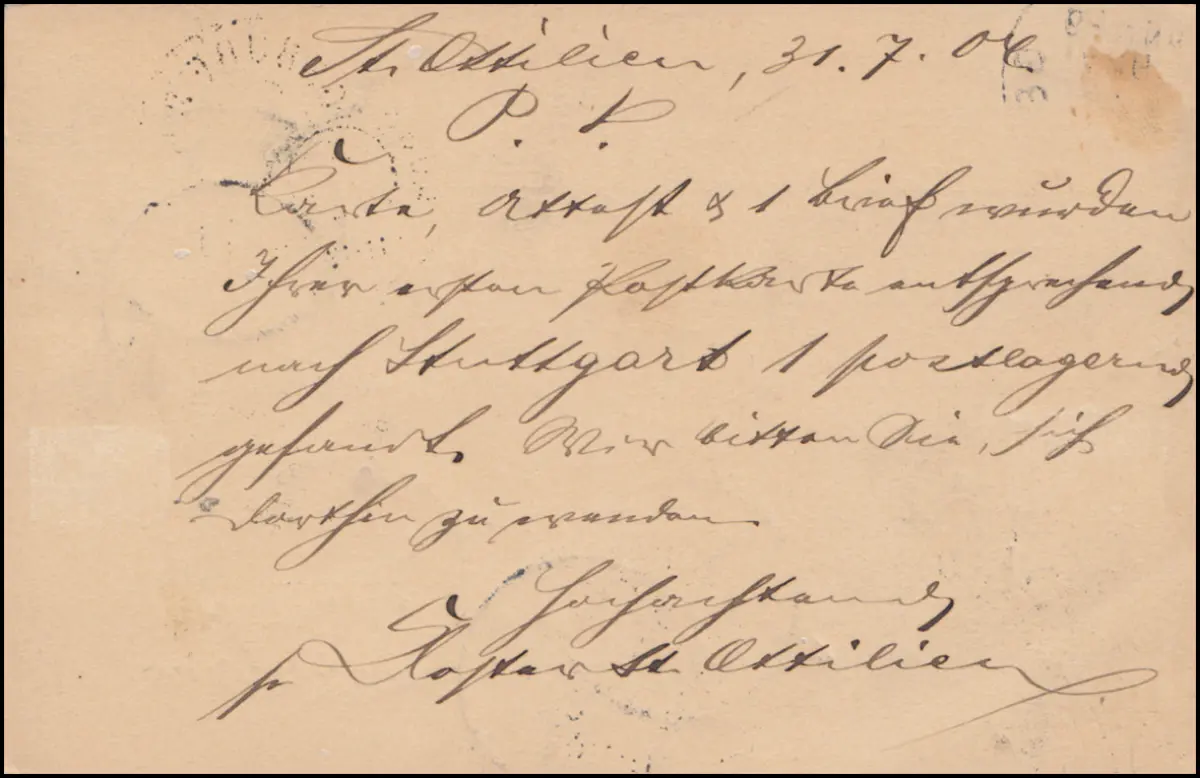 St. Ottilien, 31. 7. 06
P. P.
Karte, Attest & 1 Brief wurden
Ihrer ersten Postkarte entsprechend
nach Stuttgart 1 postlagernd
gesandt. Wir bitten Sie, sich
dorthin zu wenden.
Hochachtend
Kloster St. Ottilien